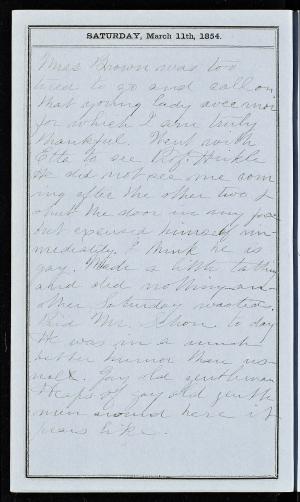 SATURDAY, March 11th, 1854.
Mrs Brown was too
tired to go and call on
that young lady over nor
for which I am truly
thankful. Went with
Etta to see Prof. Hinkle
He did not see me com
ing after the other two &
shut the door in my face
but excused himself im
mediately. I think he is
gay. Made a little tatting
and did nothing an-
other Saturday wasted.
Paid Mr. to day
He was in a much
better humor than us-
ual. Gay old gentleman
Heaps of gay old gentle
men around here it
pears like.